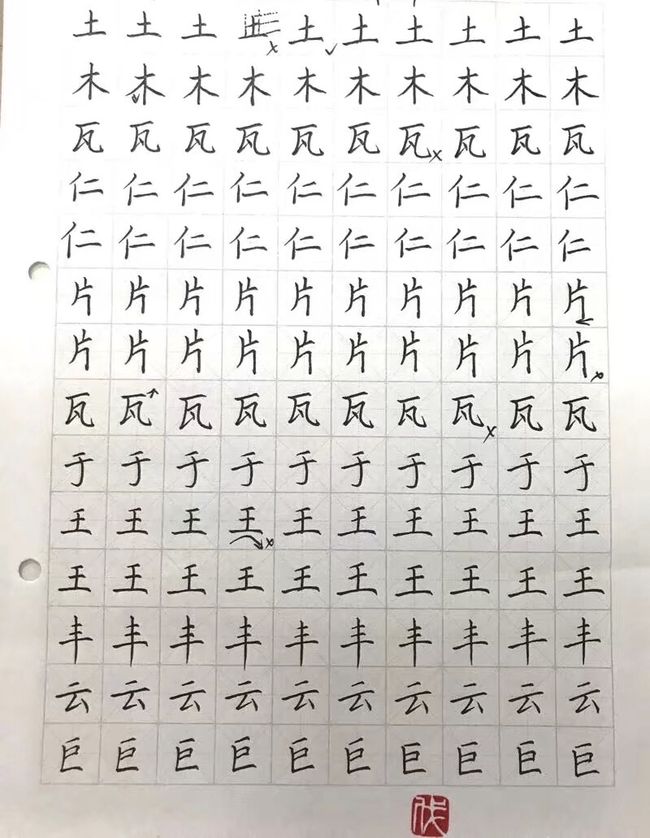 土土土土土土土土土土
木木木木木木木木木木
瓦瓦瓦瓦瓦瓦瓦瓦瓦瓦
仁仁仁仁仁仁仁仁仁仁
仁仁仁仁仁仁仁仁仁仁
片片片片片片片片片片
片片片片片片片片片片
瓦瓦瓦瓦瓦瓦瓦瓦瓦瓦
于于于于于于于于于于
王王王王王王王王王王
王王王王王王王王王王
丰丰丰丰丰丰丰丰丰丰
云云云云云云云云云云
巨巨巨巨巨巨巨巨巨巨